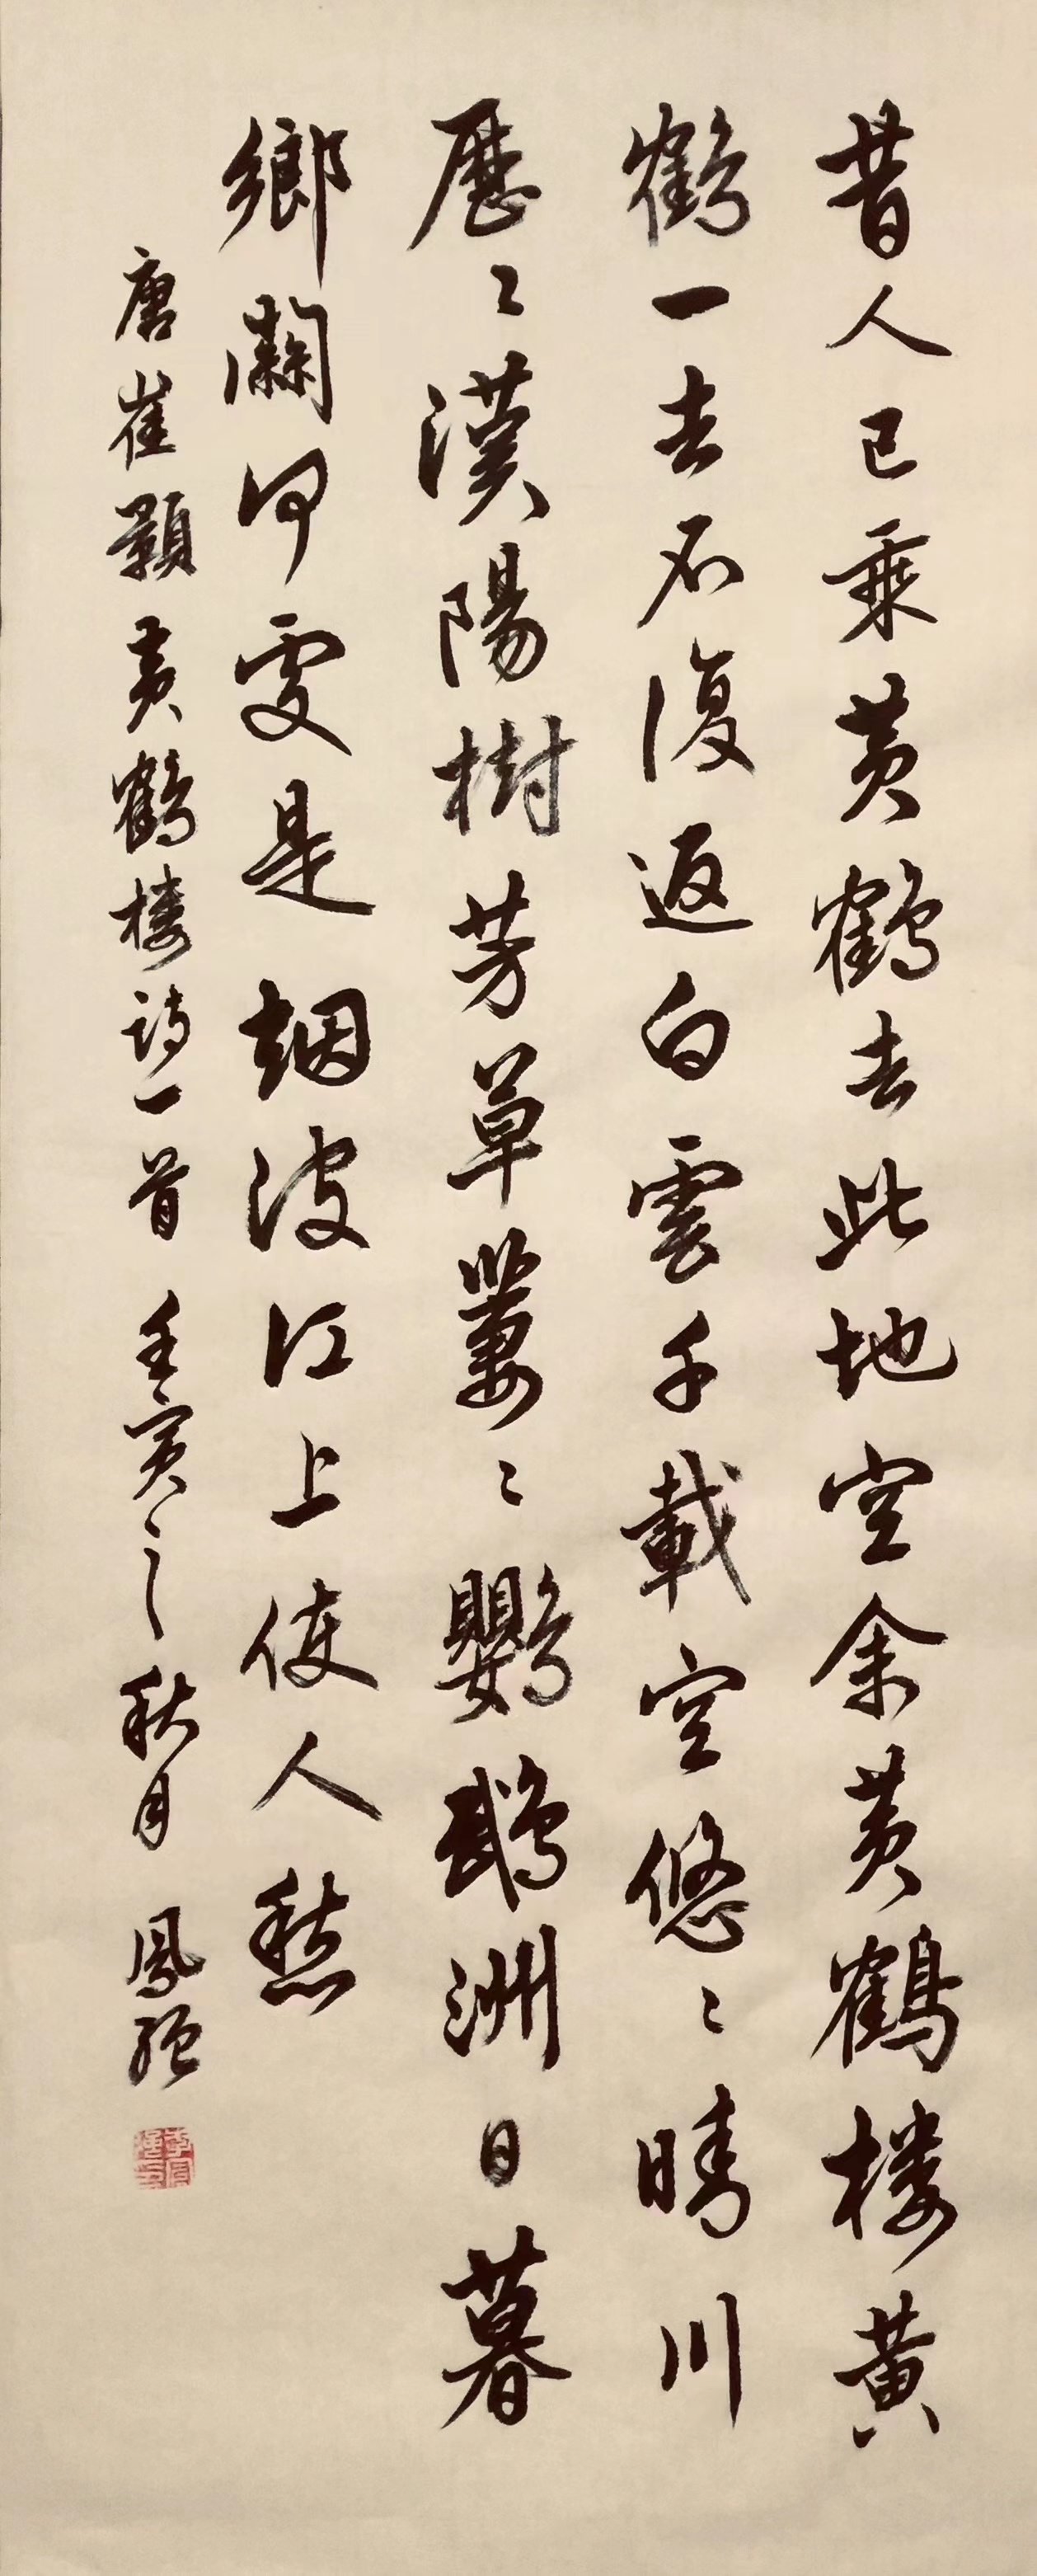 昔人已乘黄鶴去此地空余黄鶴楼黄
鶴一去不復返白雲千載空悠々晴川
歷々漢陽樹芳草萋々鸚鵡洲日暮
鄉關何處是烟波江上使人愁
唐崔顥黄鶴楼詩一首 壬寅之秋月 鳳强